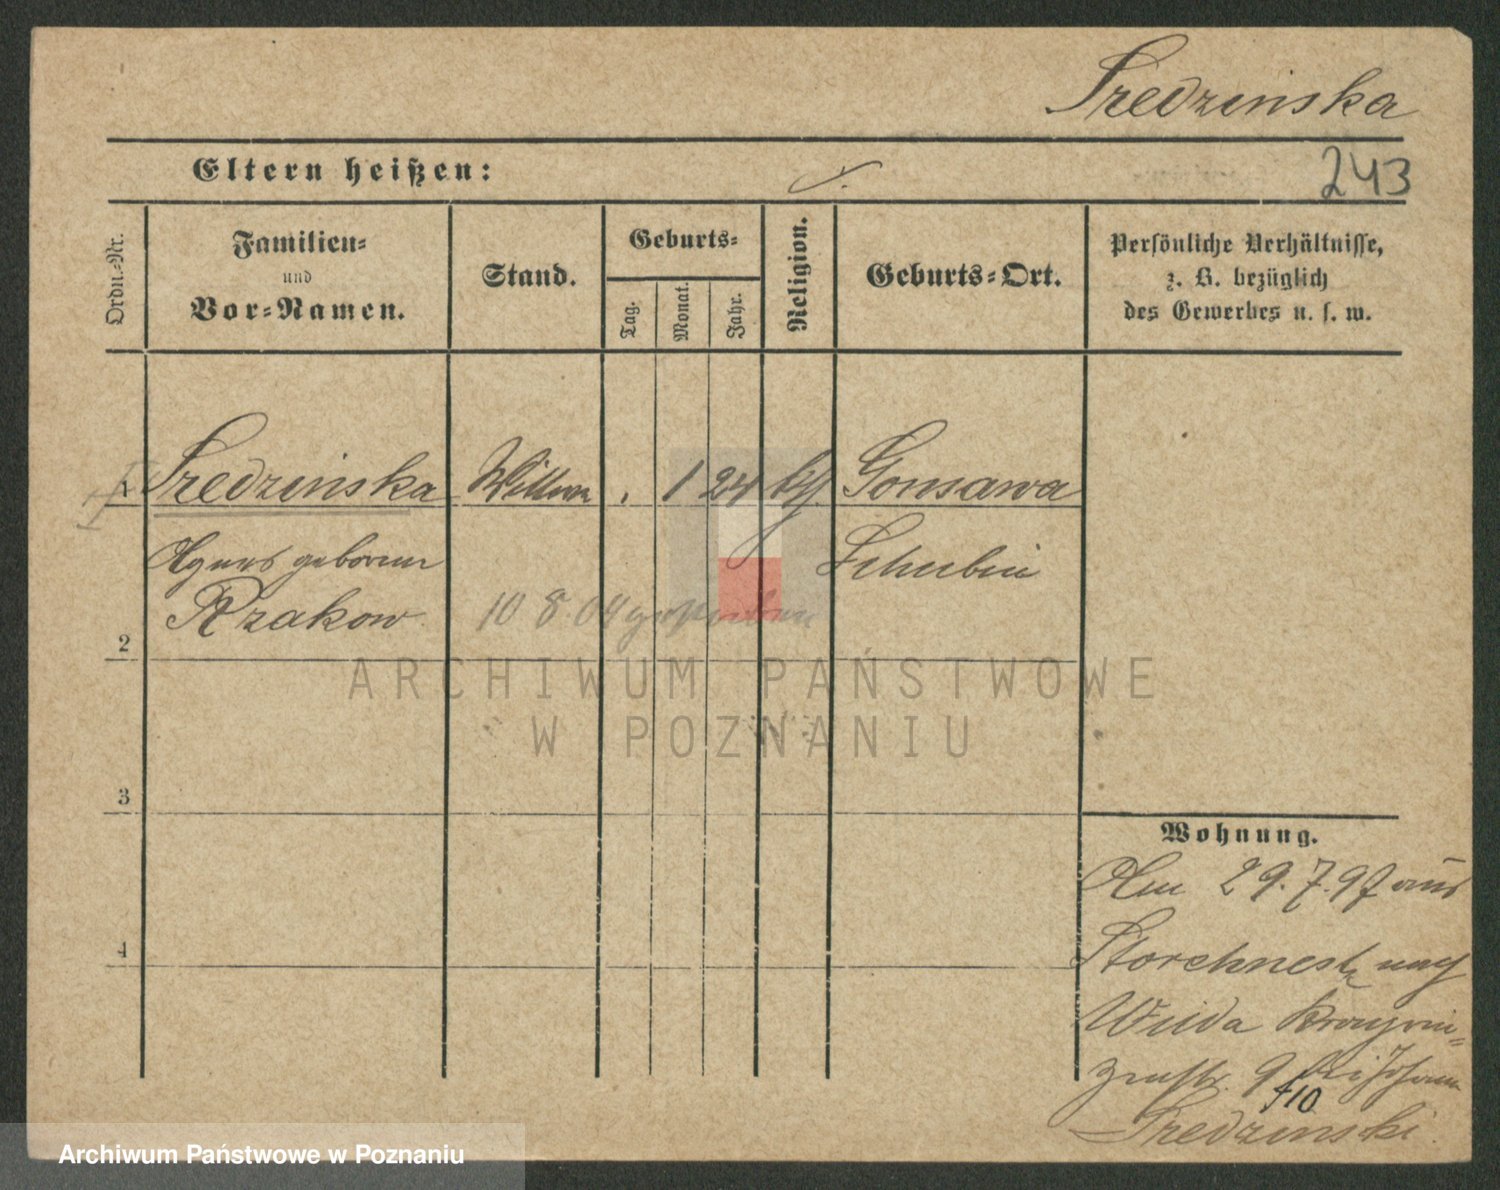 Sredzinska
Eltern heißen:
243
Ordn.-Nr.
Familien-
und
Vor-Namen.
Stand.
Geburts-
Tag.
Monat.
Jahr.
Religion.
Geburts-Ort.
Persönliche Verhältnisse,
z. B. bezüglich
des Gewerbes u. s. w.
1 Sredzinska Wittwe 1 24 Gonsawa
Agnes geborene Schubin
Rzakow
10 8. 04 gestorben
2
3
4
Wohnung.
Am 29.7.97 aus
Storchnest nach
Wilda Kronprin=
zenstr. 9 bei Johann
f10
Sredzinski.
ARCHIWUM PAŃSTWOWE
W POZNANIU
Archiwum Państwowe w Poznaniu